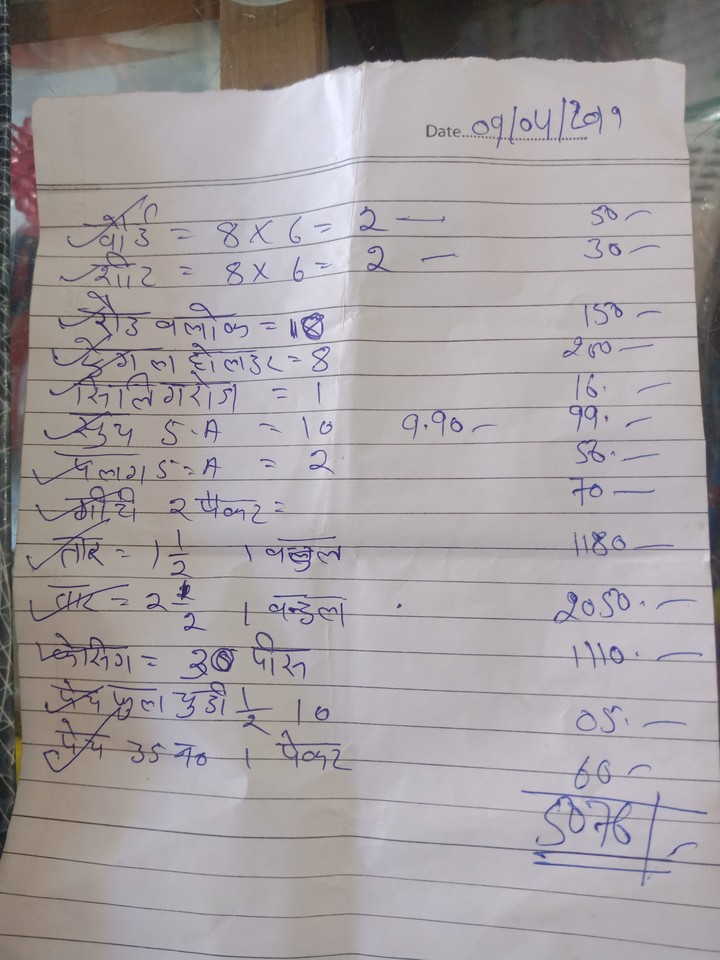 Date 09/04/2019
बोर्ड = 8 X 6 = 2 — 50 —
शीट = 8 X 6 = 2 — 30 —
रौउ वलोक = 10 150 —
होलडर = 8 200 —
सिलिगरोज = 1 16. —
5.A = 10 9.90 — 99. —
पलग 5 = A = 2 50. —
गीटी 2 पैकट = 70 —
तार = 1 1/2 1 1180 —
वार = 2 1/2 1 वन्डल 2050. —
केसिग = 30 पीस 1110. —
पेच फुला गुडी 1/2 10 05. —
पेच 35 न० 1 पेकट 60 —
5076/-